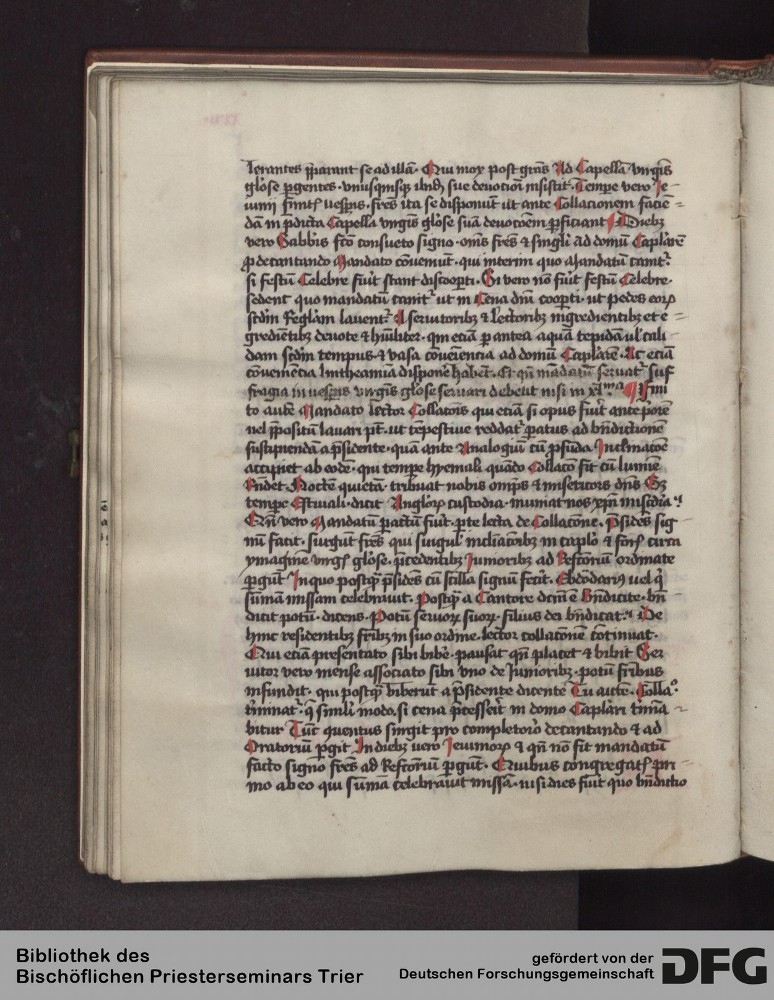 lerantes p̄parant se ad illā. Qui mox post grās Ad Capellā virgīs
glōse ꝑgentes. vnusquisqꝫ ibidē sue devotiōi insistit. Tempe vero Ie⸗
iunii finit̄ vesp̄is. frēs ita se disponūt ut ante Collacionem faciē⸗
dā in p̄dicta Capella virgīs glōse suā devocōem ꝑficiant ¶ Diebꝫ
vero Sabbīs fcō consueto signo. om̄s frēs & singli ad domū Caplārē
ꝓ decantando Mandato cōveniūt. qui interim quo Mandatū canit̄.
si festū Celebre fūit stant discoopti. Si vero nō fūit festū Celebre.
sedent quo mandatū canit̄ ut in Cena dnī coopti. ut pedes eoꝝ
scdm̄ Reglam lavent̄. A servitoribꝫ & Lectoribꝫ ingredientibꝫ et e⸗
gredientibꝫ devote & hūiliter. qui eciā ꝑ antea aquā tepidā ul̄ cali⸗
dam scdm̄ tempus. & vasa cōveniencia ad domū Caplārē. Ac eciā
cōveniēcia lintheamia disponē habent. Et qn̄ mandatū servat̄. suf
fragia in vesp̄is virgīs glōse servari debent nisi in xlᵐᵃ ¶ Fini
to autē Mandato Lector Collacōis qui eciā si opus fūit ante p̄orē
vel p̄positū lavari pt̄. ut tēpestive reddat̄ ꝑatus ad bn̄dictionē
suscipiendā a p̄sidente. quā ante Analogiū cū ꝓfūda Inclinacōe
accipiet ab eodē. qui tempe hyemali quādo Collacō fit cū lumīe
Rn̄det. Noctē quietā. tribuat nobis omp̄s & misericors dn̄s Sꝫ
tempe Estivali. dicit Angloꝝ custodia. muniat nos xp̄ī mīsēdia.
Qn̄ vero Mandatū ꝑactū fūit. ꝑte lecta de Collacōne. p̄sidēs sig
nū facit. surgūt frēs qui singul̄ inclīacōibꝫ in caplō & fact̄ circa
ymaginē virgīs glōse. p̄cedentibꝫ Iunioribꝫ ad Refcōriū ordinate
ꝑgūt. In quo postqꝫ p̄sidēs cū scilla signū fecit. Ebdōdariꝰ vel qͥ
sūmam missam celebravit. Postqꝫ a Cantore dcm̄ ē Bn̄dicite. bn̄
dicit potū. dicens. Potū servoꝝ suoꝝ. filius dei bn̄dicat. De
hinc residentibꝫ fribꝫ in suo ordine. lector collacōnē cōtinuat.
Qui eciā presentato sibi bibē. pausat qn̄ placet & bibit Ser
vitor vero mense associato sibi vno de Iunioribꝫ. potū fribus
infundit. qui postqꝫ biberūt a p̄sidente dicente Tu autē. Colla⁰.
t̄minat̄. q̄ simili modo. si cena p̄cesserit in domo Caplāri t̄mīa
bitur Tūc quentus surgit pro completorō decantando & ad
Oratoriū ꝑgit In diebꝫ vero Ieiunioꝝ & qn̄ nō fit mandatū
facto signo frēs ad Refcōriū ꝑgūt. Quibus congregat̄ pri
mo ab eo qui sūmā celebravit missā. nisi dies fūit quo bn̄dictio
Bibliothek des
Bischöflichen Priesterseminars Trier
gefördert von der
Deutschen Forschungsgemeinschaft DFG